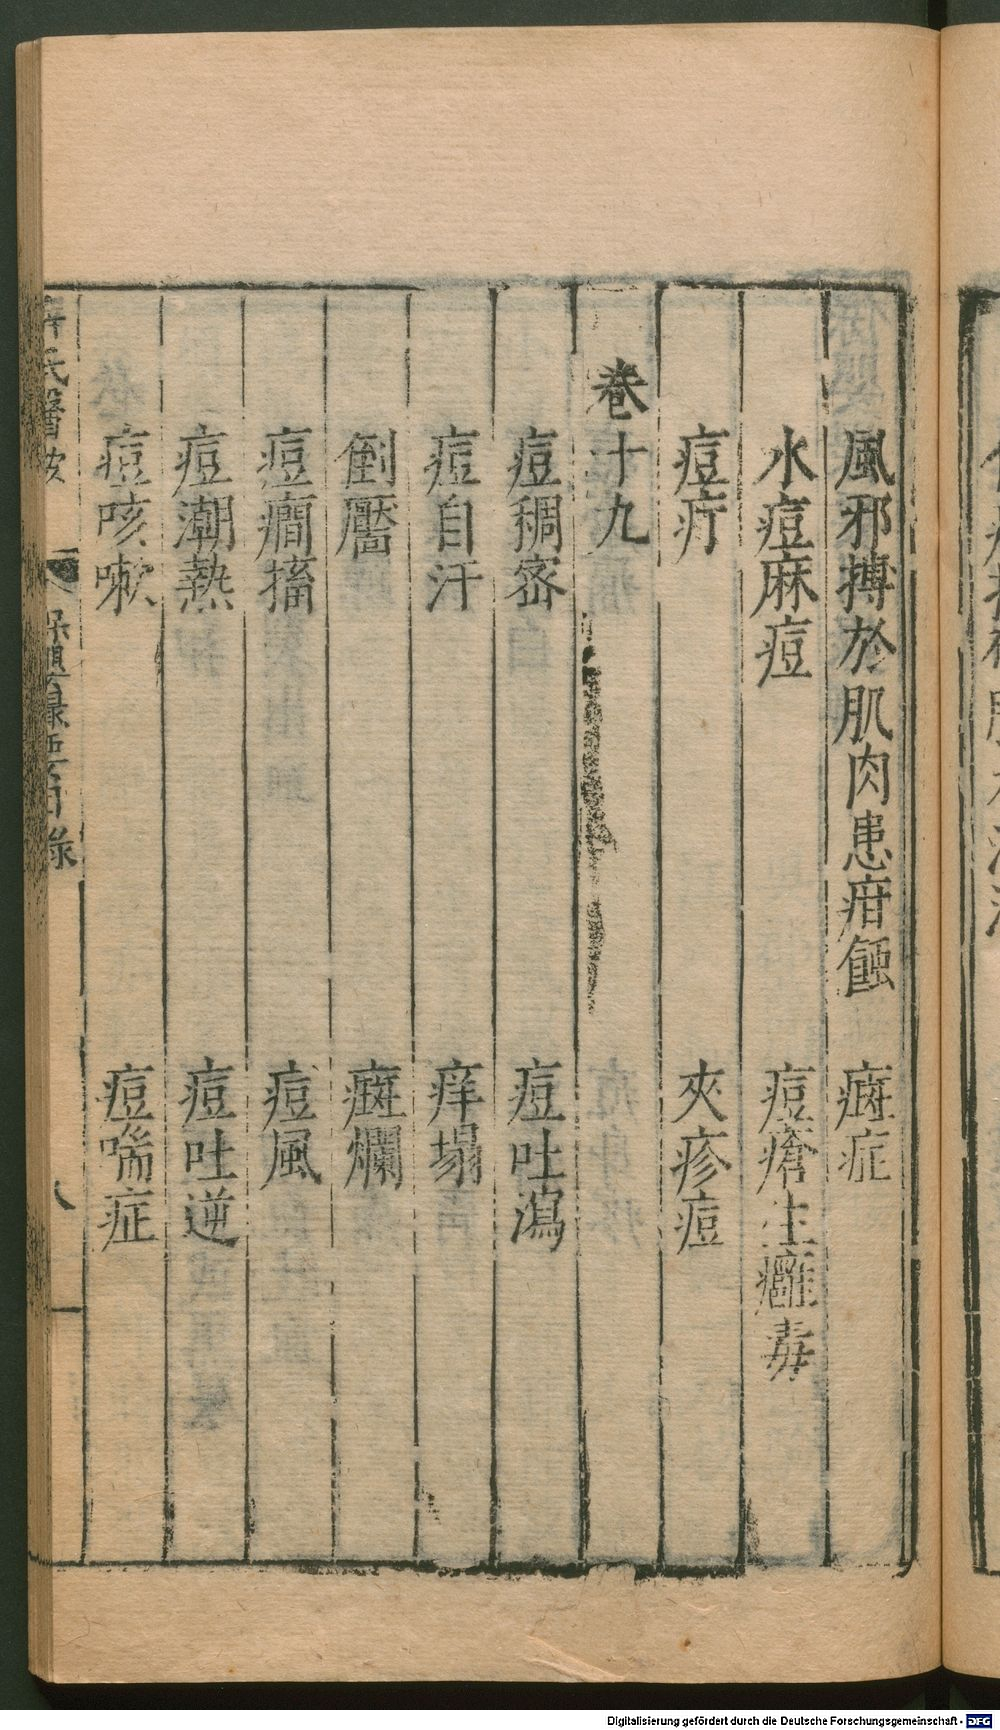 風邪搏於肌肉患疳蝕　癍症
水痘麻痘　痘瘡生癰毒
痘疔　夾疹痘
卷十九
痘稠密　痘吐瀉
痘自汗　痒塌
倒靨　癍爛
痘癇搐　痘風
痘潮熱　痘吐逆
痘咳嗽　痘喘症
氏醫按　錄　目錄　八
Digitalisierung gefördert durch die Deutsche Forschungsgemeinschaft - DFG